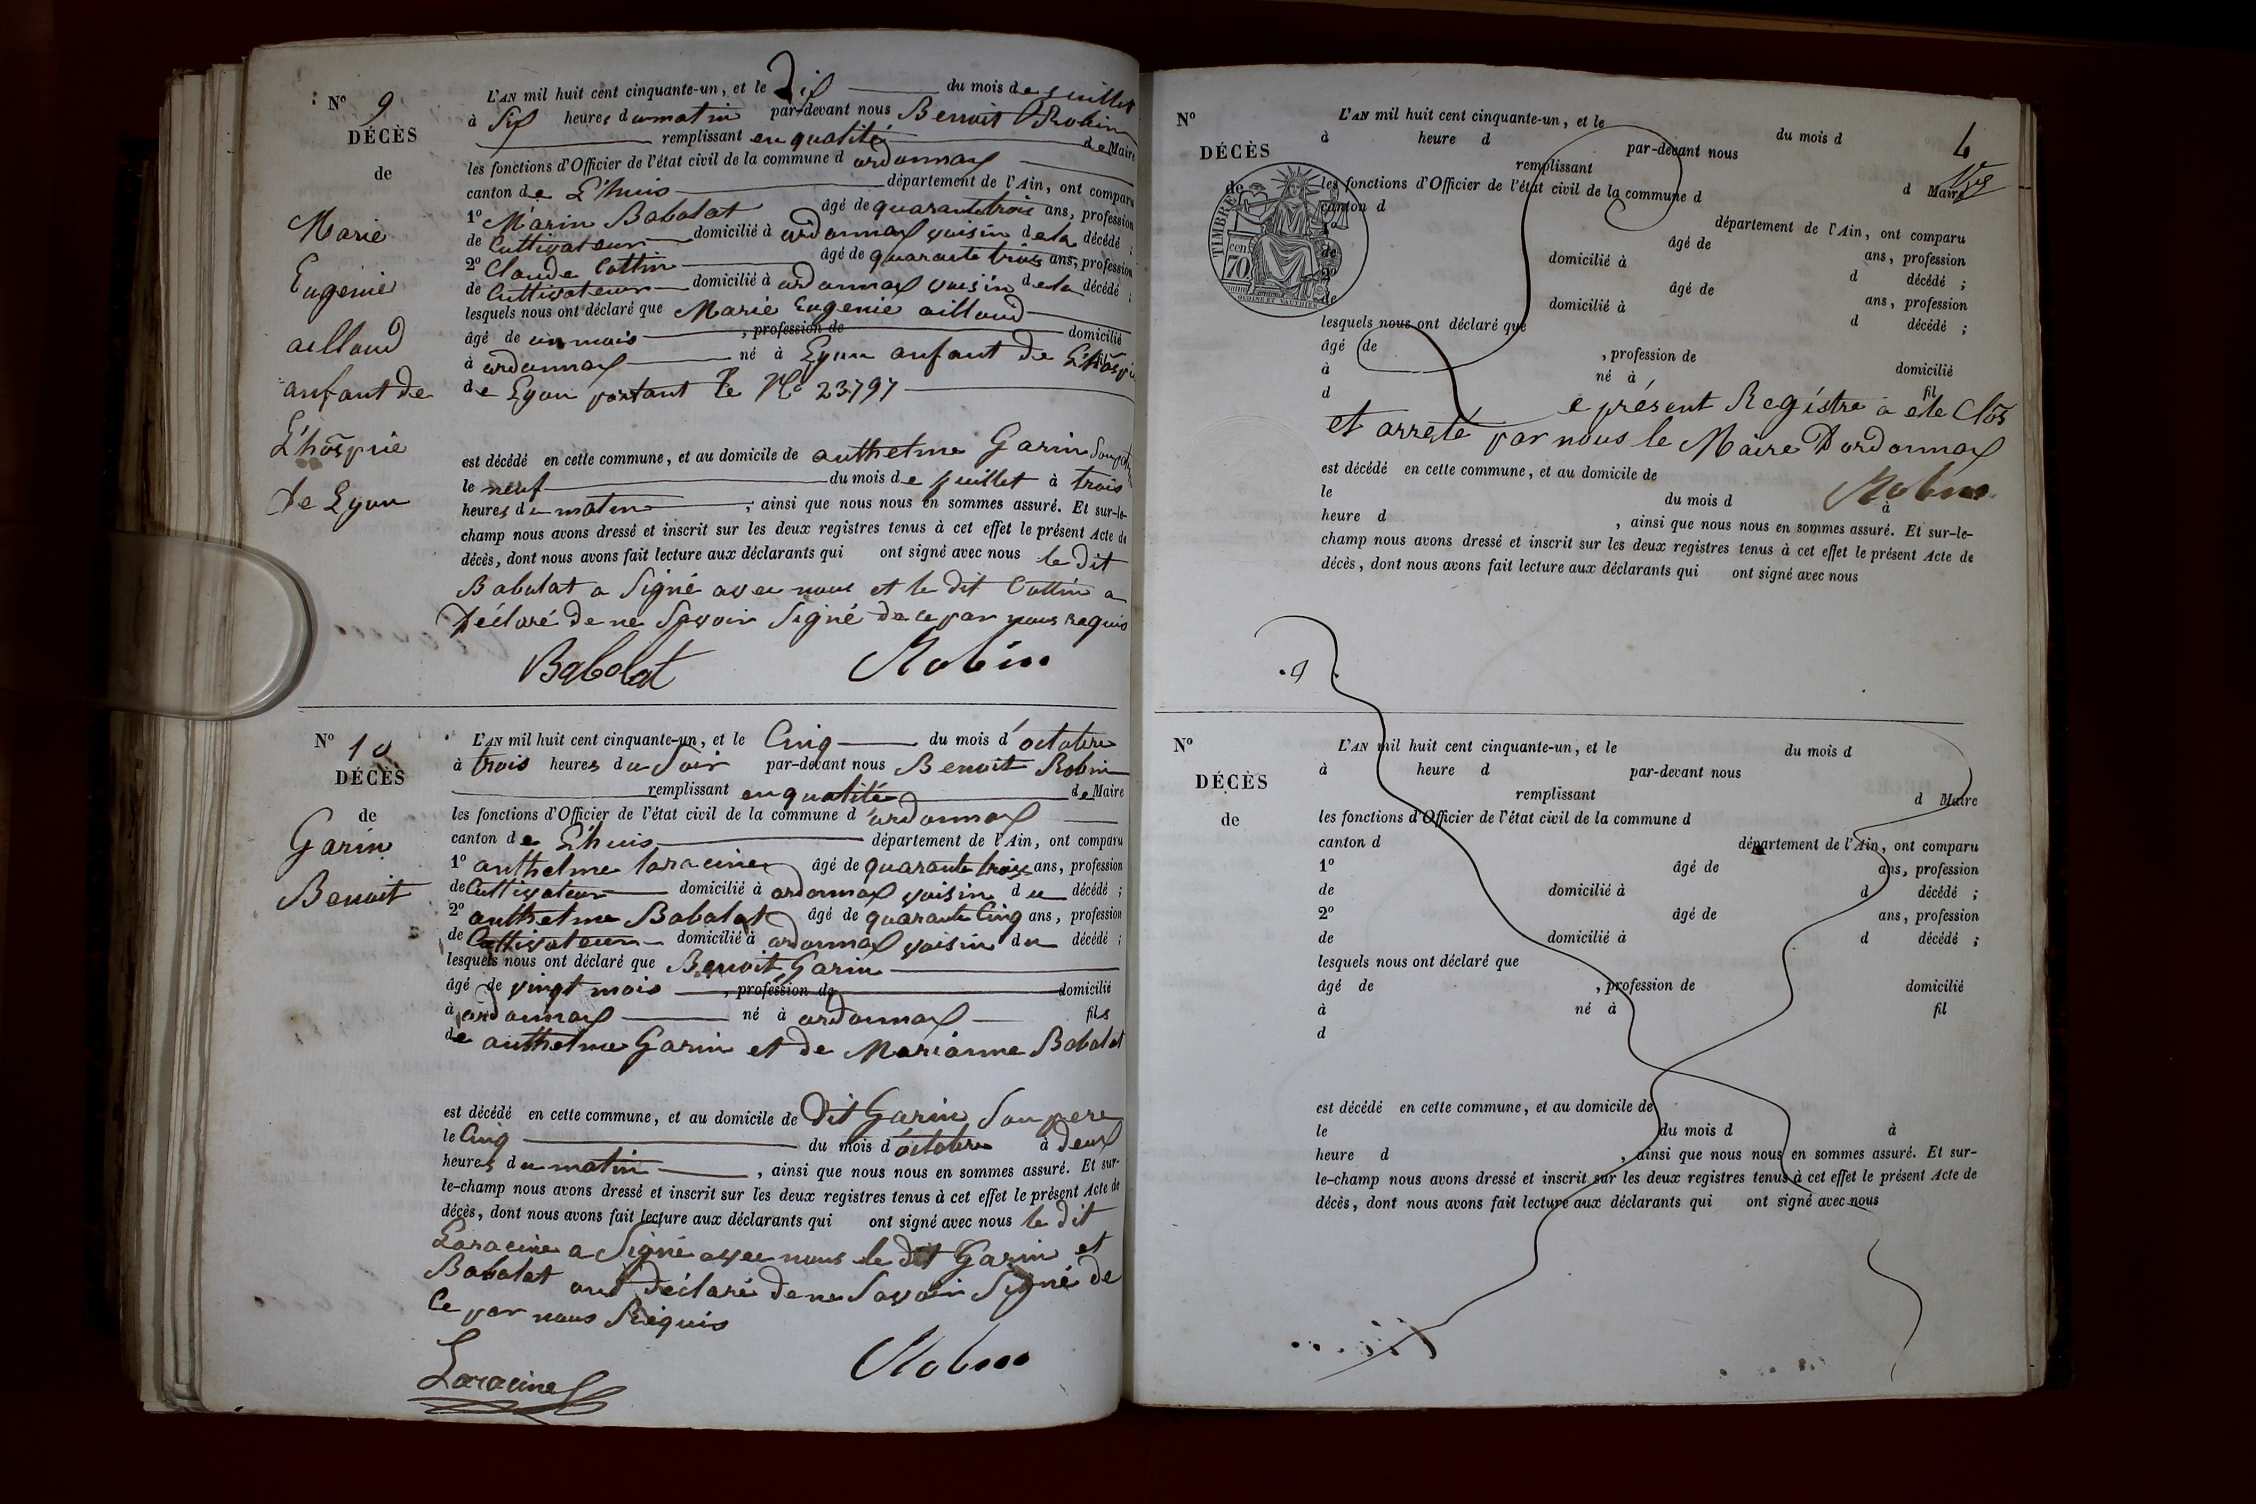 N° 9
DÉCÈS
de
Marie
Eugenie
ailloud
anfant de
L'hospie
De Lyon
L'AN mil huit cent cinquante-un, et le Dix du mois de juillet
à Six heures du matin par-devant nous Benoit Robin
remplissant en qualité de Maire
les fonctions d'Officier de l'état civil de la commune d ordonnax
canton de L'huis département de l'Ain, ont comparu
1° Marin Babolat âgé de quarante trois ans, profession
de Cultivateur domicilié à ordonnax voisin de la décédé ;
2° Claude Cottin âgé de quarante trois ans, profession
de Cultivateur domicilié à ordonnax voisin de la décédé ;
lesquels nous ont déclaré que Marie Eugenie ailloud
âgé de un mois , profession de domicilié
à ordonnax né à Lyon anfant de L'hospie
de Lyon portant le N° 23797
est décédé en cette commune, et au domicile de anthelme Garin
le neuf du mois de juillet à trois
heures du matin ; ainsi que nous nous en sommes assuré. Et sur-le-
champ nous avons dressé et inscrit sur les deux registres tenus à cet effet le présent Acte de
décès, dont nous avons fait lecture aux déclarants qui ont signé avec nous le dit
Babolat a Signé avec nous et le dit Cottin a
Déclaré de ne Savoir Signé de ce par nous requis
Babolat Robin
N° 10
DÉCÈS
de
Garin
Benoit
L'AN mil huit cent cinquante-un, et le Cinq du mois d'octobre
à trois heures du Soir par-devant nous Benoit Robin
remplissant en qualité de Maire
les fonctions d'Officier de l'état civil de la commune d'ordonnax
canton de L'huis département de l'Ain, ont comparu
1° anthelme laracine âgé de quarante trois ans, profession
de Cultivateur domicilié à ordonnax voisin du décédé ;
2° anthelme Babolat âgé de quarante Cinq ans, profession
de Cultivateur domicilié à ordonnax voisin du décédé ;
lesquels nous ont déclaré que Benoit Garin
âgé de vingt mois , profession de domicilié
à ordonnax né à ordonnax fils
de anthelme Garin et de Marianne Babolat
est décédé en cette commune, et au domicile de Dit Garin Son pere
le Cinq du mois d'octobre à Deux
heures du matin , ainsi que nous nous en sommes assuré. Et sur-
le-champ nous avons dressé et inscrit sur les deux registres tenus à cet effet le présent Acte de
décès, dont nous avons fait lecture aux déclarants qui ont signé avec nous le dit
Laracine a Signé avec nous le dit Garin et
Babolat ont Déclaré de ne Savoir Signé de
Ce par nous Réquis
Laracine Robin
N°
DÉCÈS
de
TIMBRE
70 cen
OUDINÉ ET VAUTHIER
L'AN mil huit cent cinquante-un, et le du mois d
à heure d par-devant nous
remplissant d Maire
les fonctions d'Officier de l'état civil de la commune d
canton d département de l'Ain, ont comparu
âgé de ans, profession
de domicilié à d décédé ;
2° âgé de ans, profession
de domicilié à d décédé ;
lesquels nous ont déclaré que
âgé de , profession de domicilié
à né à fil
d
Le présent Registre a été Clos
et arreté par nous le Maire D'ordonnax
Robin
est décédé en cette commune, et au domicile de
le du mois d à
heure d , ainsi que nous nous en sommes assuré. Et sur-le-
champ nous avons dressé et inscrit sur les deux registres tenus à cet effet le présent Acte de
décès, dont nous avons fait lecture aux déclarants qui ont signé avec nous
N°
DÉCÈS
de
L'AN mil huit cent cinquante-un, et le du mois d
à heure d par-devant nous
remplissant d Maire
les fonctions d'Officier de l'état civil de la commune d
canton d département de l'Ain, ont comparu
1° âgé de ans, profession
de domicilié à d décédé ;
2° âgé de ans, profession
de domicilié à d décédé ;
lesquels nous ont déclaré que
âgé de , profession de domicilié
à né à fil
d
est décédé en cette commune, et au domicile de
le du mois d à
heure d , ainsi que nous nous en sommes assuré. Et sur-
le-champ nous avons dressé et inscrit sur les deux registres tenus à cet effet le présent Acte de
décès, dont nous avons fait lecture aux déclarants qui ont signé avec nous